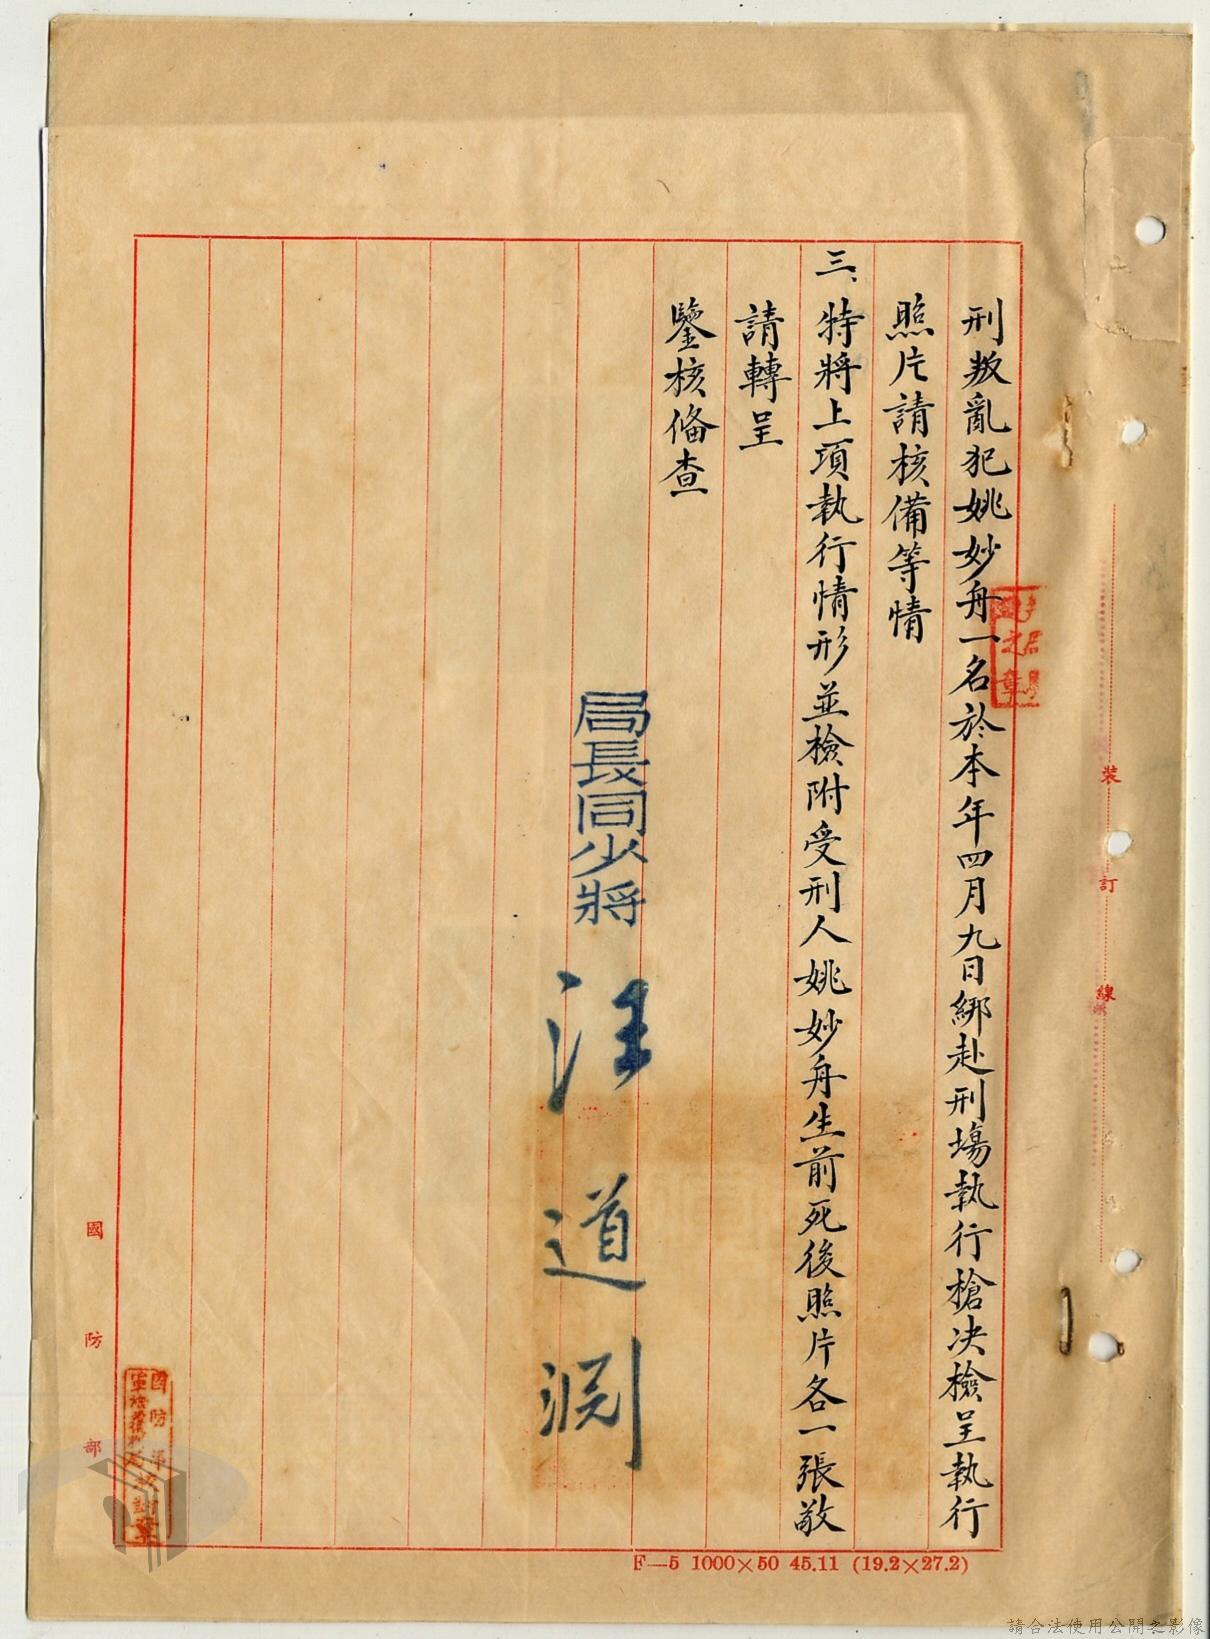 刑叛亂犯姚妙舟一名於本年四月九日綁赴刑場執行槍决檢呈執行
照片請核備等情
三、特將上項執行情形並檢附受刑人姚妙舟生前死後照片各一張敬
請轉呈
鑒核偹查
局長同少將 汪道淵
裝訂線
國防部
F—5 1000×50 45.11 (19.2×27.2)
請合法使用公開之影像